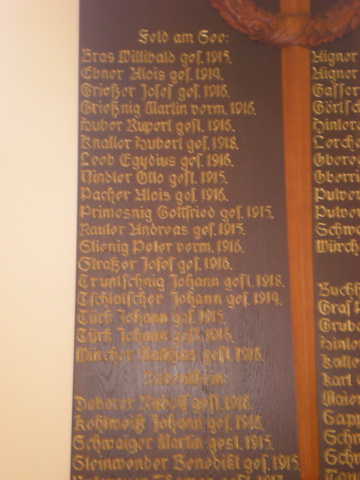 Feld am See:
Bras Willibald gef. 1915.
Ebner Alois gef. 1914.
Grießer Josef gef. 1916.
Grießnig Martin verm. 1916.
Huber Rupert gest. 1916.
Knaller Hubert gef. 1918.
Leeb Egydius gef. 1916.
Nindler Otto gef. 1915.
Pacher Alois gef. 1916.
Primesnig Gottfried gef. 1915.
Rauter Andreas gef. 1915.
Stienig Peter verm. 1916.
Straßer Josef gef. 1916.
Truntschnig Johann gest. 1918.
Johann gef. 1914.
Türk Johann gef. 1915.
Türk Johann gest. 1916.
Würcher Matthias gest. 1918.
Daborer Rudolf gest. 1916.
Kohlweiß Johann gef. 1916.
Schwaiger Martin gest. 1915.
Steinwender Benedikt gef. 1915.
Thomas gef. 1917
Aigner
Aigner
Gasser
Hinter
Lerche
Gbere
Gberri
Pulver
Pulver
Schwe
Würch
Buchh
Graf
Grub
Hinte
Kolle
Karl
Maie
Sapp
Schn
Schn